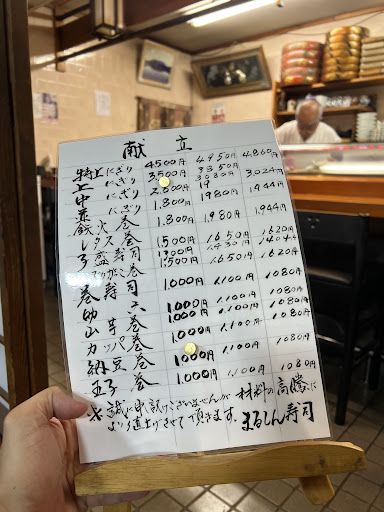 献立
特上にぎり 4500円 4950円 4860円
上にぎり 3500円 3850円
中にぎり 2800円 3080円 3024円
並にぎり 1.800 1980円 1.944円
鉄火巻 1.800円 1.980円 1.944円
レタス巻 1.500 1650円 1620円
1300 1.430円 1404円
1500円 1.650円 1.620円
1000円 1.100円 1080円
1000円 1.100円 1080円
山芋巻 1000円 1.100円 1080円
カッパ巻
納豆巻 1000円 1.100円 1080円
玉子巻 1.000円 1.100円 1080円
誠に申訳けございませんが 材料の高騰に
より値上げさせて頂きます. まるしん寿司